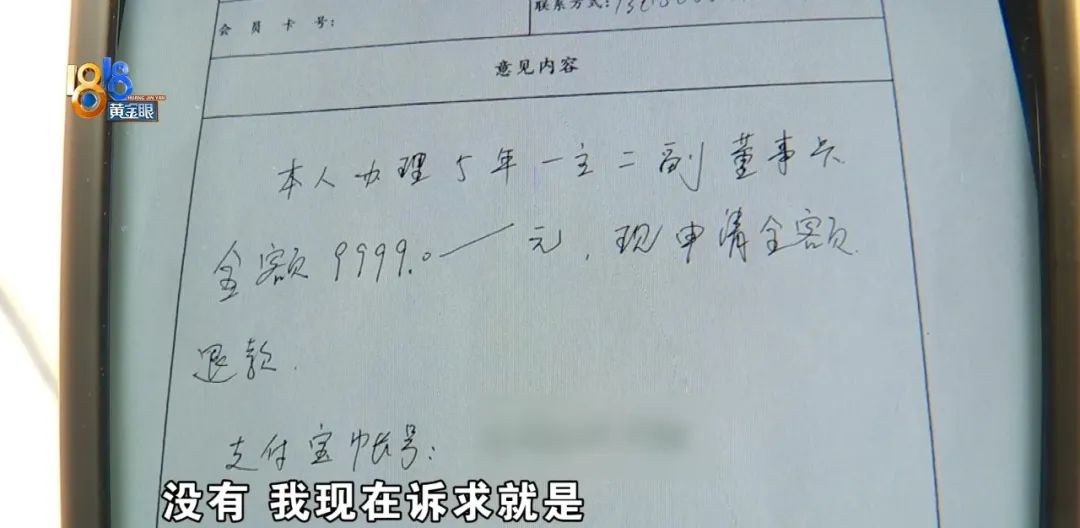 会 员 卡 号:
联系方式:
意见内容
1818
HUANG JIN YAN
黄金眼
本人办理5年一主二副董事卡
金额9999.0元,现申请全额
退款.
支付宝帐号:
没有 我现在诉求就是